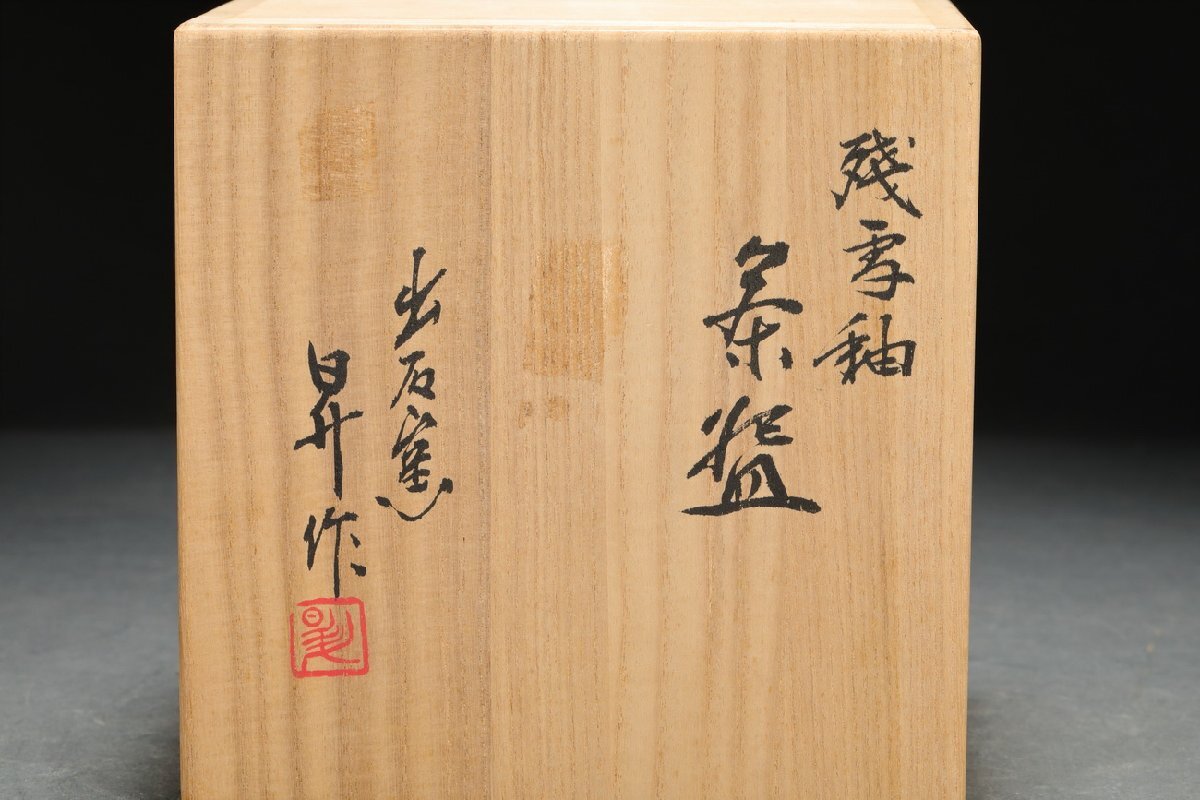 殘雪釉
茶盌
出石窯
昇作
昇